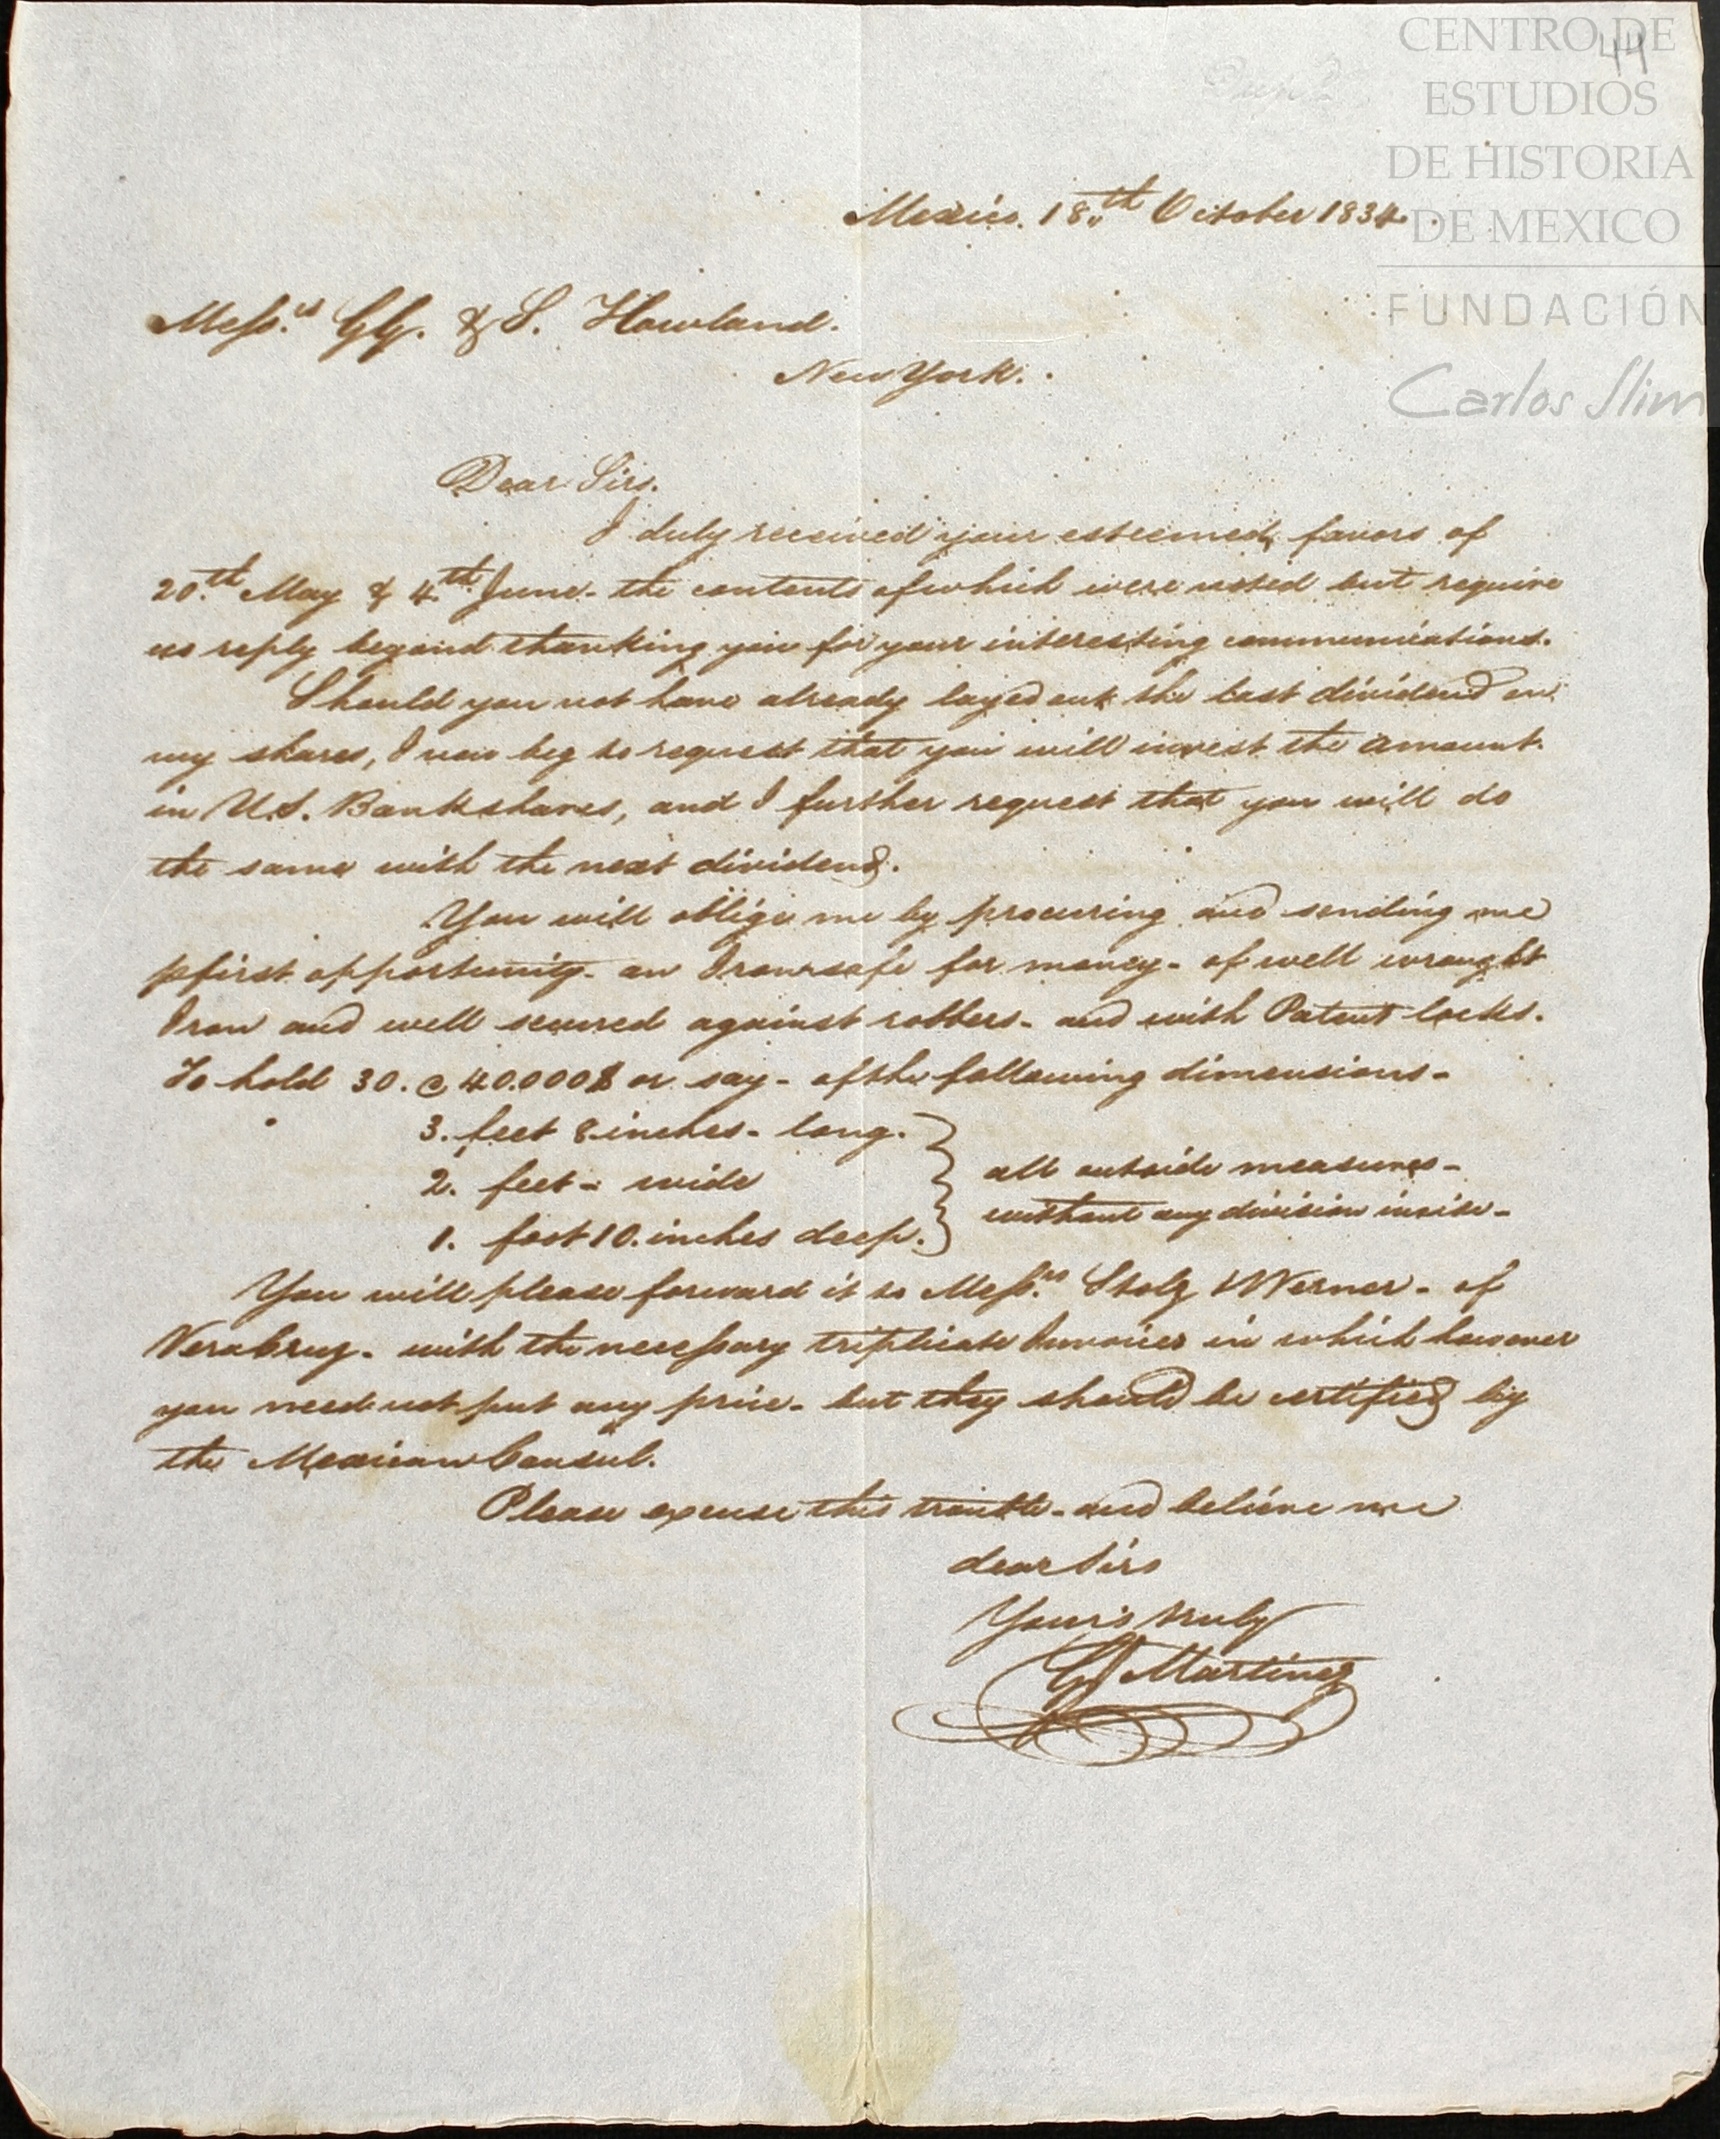 44
CENTRO DE
ESTUDIOS
DE HISTORIA
DE MEXICO
FUNDACIÓN
Carlos Slim
Mexico. 18th October 1834.
Messrs. GG. & S. Howland.
New York.
Dear Sirs.
I duly received your esteemed favors of
20th May & 4th June - the contents of which were noted but require
no reply beyond thanking you for your interesting communications.
Should you not have already layed out the last dividend on
my shares, I now beg to request that you will invest the amount
in U.S. Bank shares, and I further request that you will do
the same with the next dividend.
You will oblige me by procuring and sending me
p first opportunity - an Iron safe for money - of well wrought
Iron and well secured against robbers - and with Patent locks.
To hold 30. @ 40.000$ or say - of the following dimensions -
3. feet 8 inches - long.
2. feet - wide
1. foot 10. inches deep.
all outside measures -
without any division inside -
You will please forward it to Messrs. Stolz & Werner - of
VeraCruz - with the necessary triplicate Invoices in which however
you need not put any price - but they should be certified by
the Mexican Consul.
Please excuse this trouble - and believe me
dear Sirs
Your's truly
G Martinez